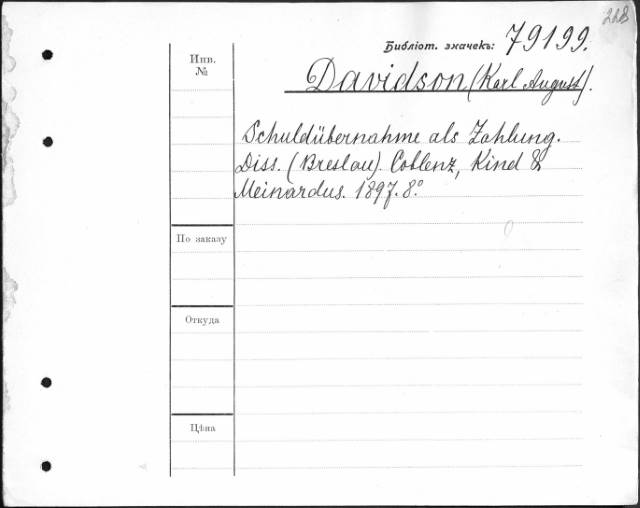 228
Библіот. значекъ: 79199.
Инв.
№
Davidson (Karl August).
Schuldübernahme als Zahlung.
Diss. (Breslau). Coblenz, Kind &
Meinardus. 1897. 8°
По заказу
Откуда
Цѣна